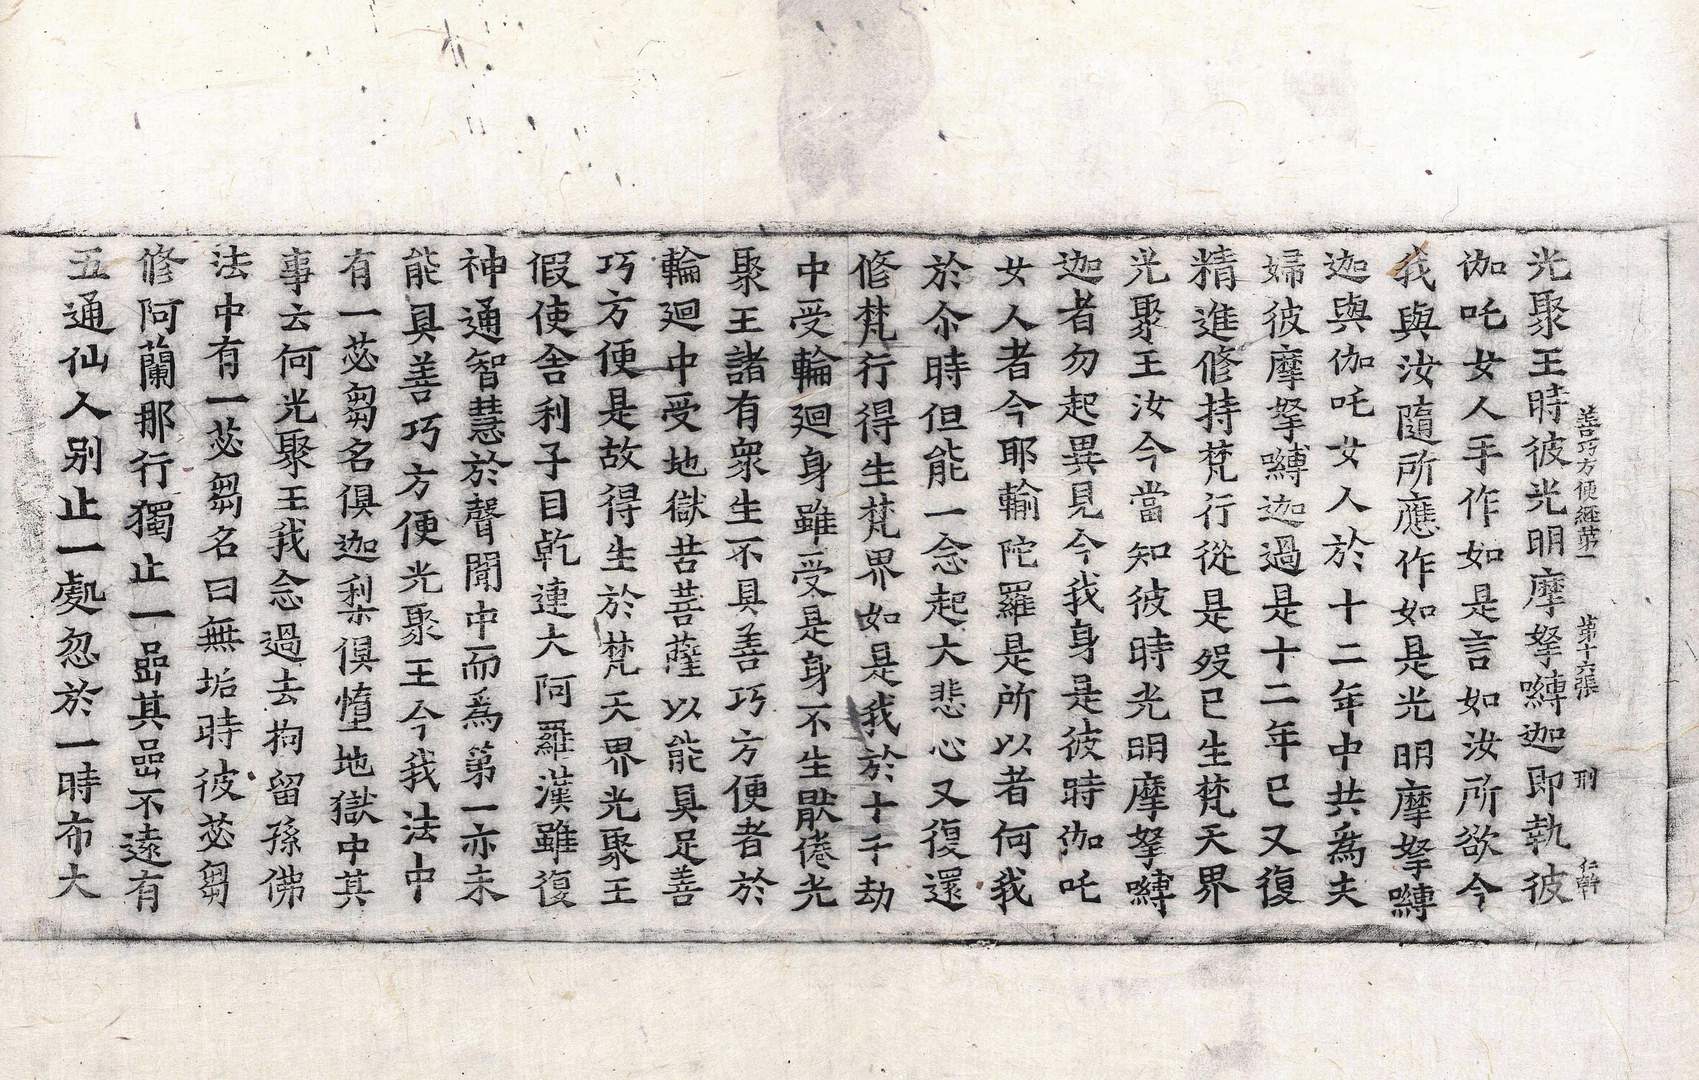 善巧方便經第一 第十六張 刑 仁幹
光聚王時彼光明摩拏嚩迦即執彼
伽吒女人手作如是言如汝所欲今
我與汝隨所應作如是光明摩拏嚩
迦與伽吒女人於十二年中共爲夫
婦彼摩拏嚩迦過是十二年已又復
精進修持梵行從是歿已生梵天界
光聚王汝今當知彼時光明摩拏嚩
迦者勿起異見今我身是彼時伽吒
女人者今耶輸陀羅是所以者何我
於尒時但能一念起大悲心又復還
修梵行得生梵界如是我於十千劫
中受輪迴身雖受是身不生猒倦光
聚王諸有衆生不具善巧方便者於
輪迴中受地獄苦菩薩以能具足善
巧方便是故得生於梵天界光聚王
假使舍利子目乾連大阿羅漢雖復
神通智慧於聲聞中而爲第一亦未
能具善巧方便光聚王今我法中
有一苾芻名俱迦梨俱墮地獄中其
事云何光聚王我念過去拘留孫佛
法中有一苾芻名曰無垢時彼苾芻
修阿蘭那行獨止一嵒其嵒不遠有
五通仙人別止一處忽於一時布大